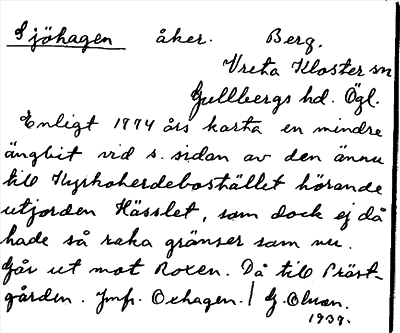 Sjöhagen åker. Berg.
Vreta Kloster sn
Gullbergs hd. Ögl.
Enligt 1774 års karta en mindre
ängbit vid s. sidan av den ännu
till Kyrkoherdebostället hörande
utjorden Hässlet, som dock ej då
hade så raka gränser som nu.
Går ut mot Roxen. Då till Präst-
gården. Jmfr. Oxhagen. / G. Olsson.
1939.